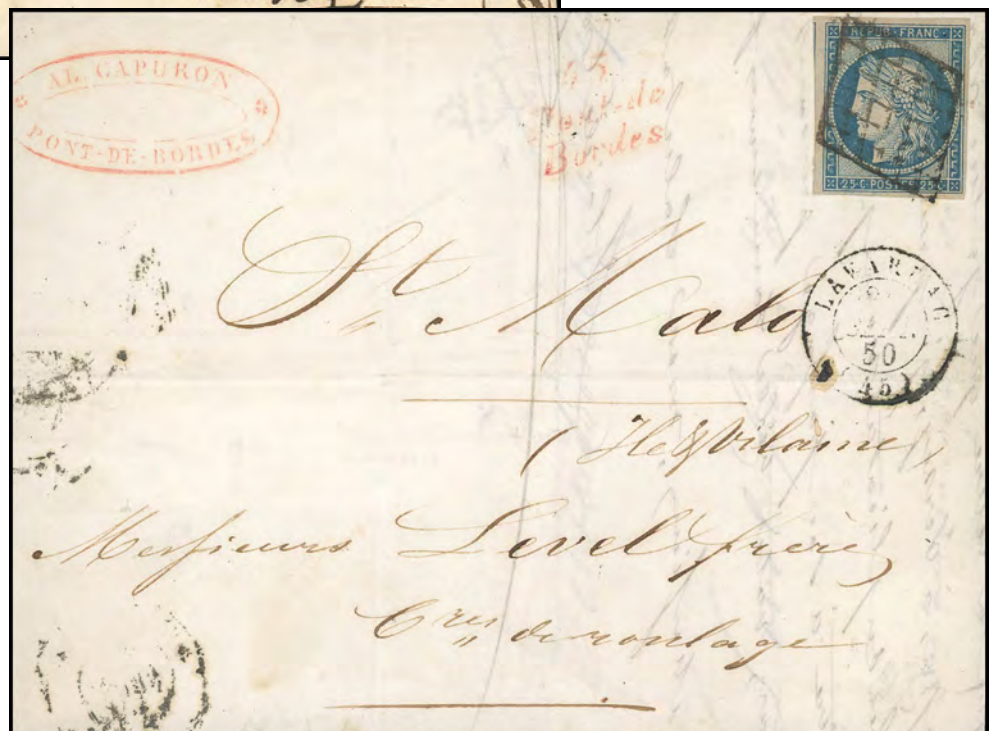 AL. CAPURON
PONT-DE-BORDES
45
Pont-de
Bordes
REPUB. FRANC.
25·C·POSTES·25·C
St Malo
LAVARDAC
50
(45)
(Ile & Vilaine)
Messieurs Level frères
Cres de roulage